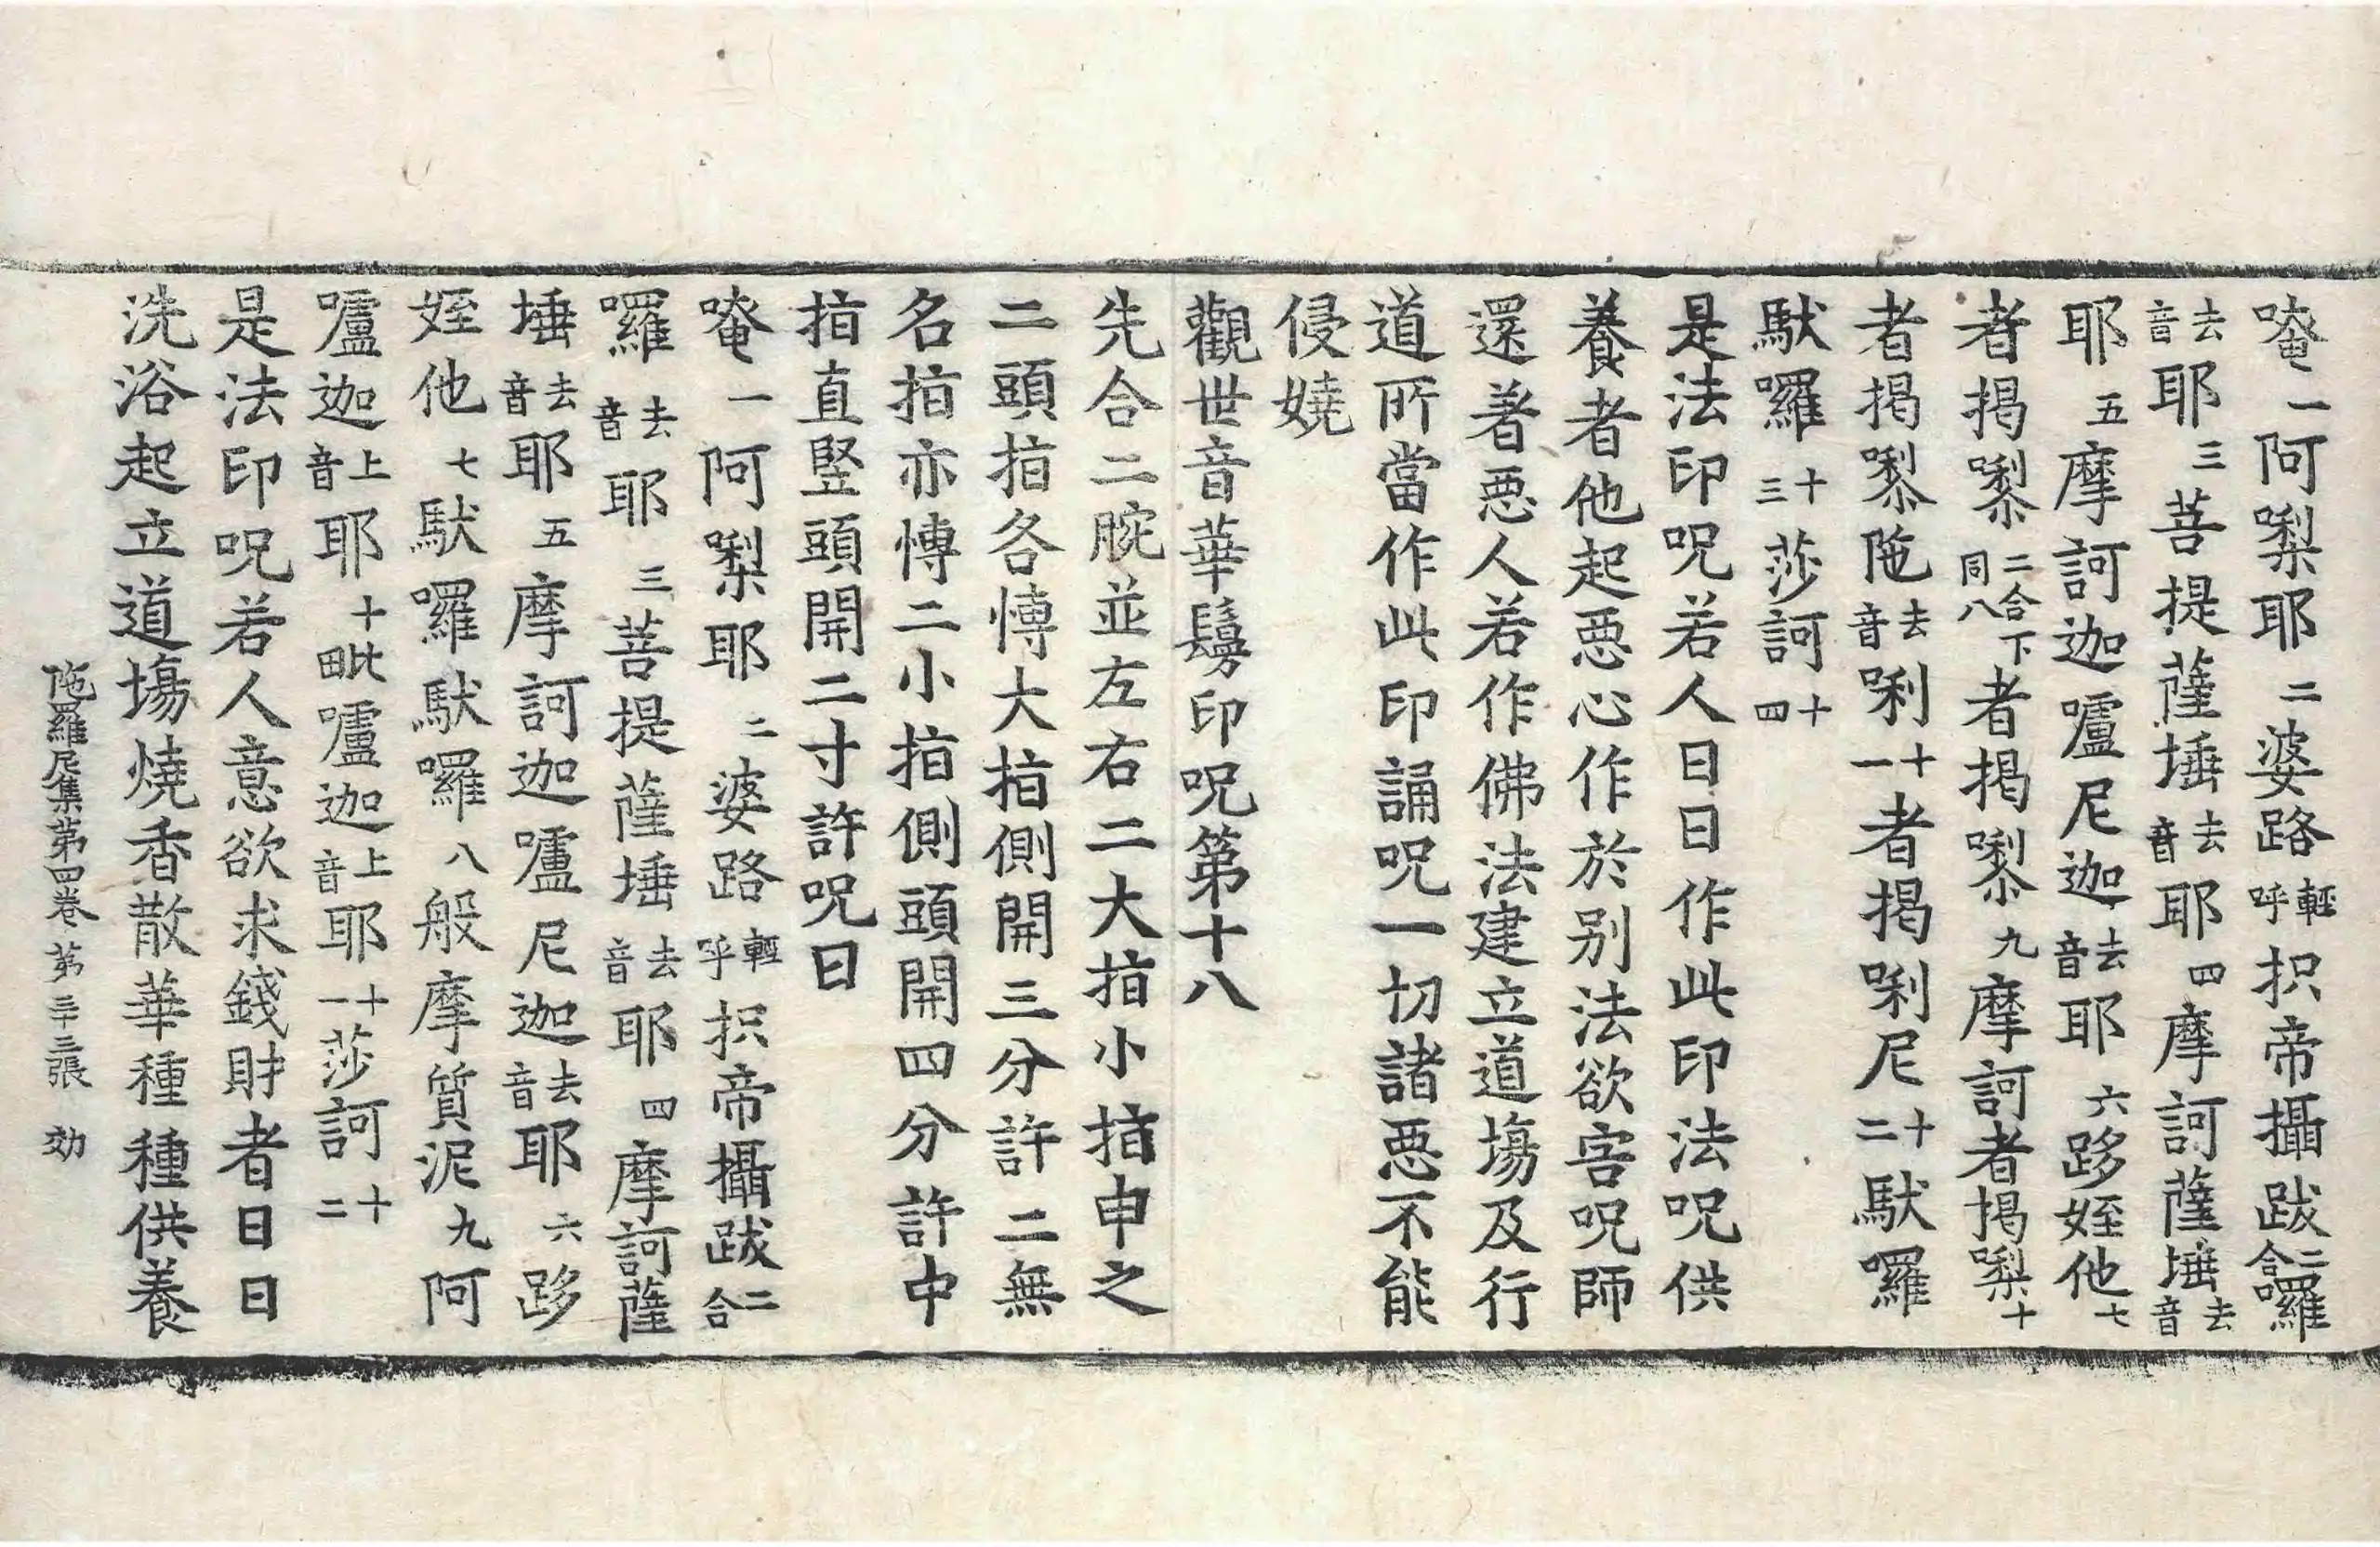 唵一阿㗚耶二婆路輕呼抧帝攝跋二合囉
去音耶三菩提薩埵去音耶四摩訶薩埵去音
耶五摩訶迦嚧尼迦去音耶六跢姪他七
者揭㗚二合下同八者揭㗚九摩訶者揭㗚十
者揭㗚陁去音唎十一者揭唎尼十二䭾囉
䭾囉十三莎訶十四
是法印呪若人日日作此印法呪供
養者他起惡心作於别法欲害呪師
還著惡人若作佛法建立道場及行
道所當作此印誦呪一切諸惡不能
侵嬈
觀世音華鬘印呪第十八
先合二腕並左右二大指小指申之
二頭指各愽大指側開三分許二無
名指亦愽二小指側頭開四分許中
指直竪頭開二寸許呪曰
唵一阿㗚耶二婆路輕呼抧帝攝跋二合
囉去音耶三菩提薩埵去音耶四摩訶薩
埵去音耶五摩訶迦嚧尼迦去音耶六跢
姪他七䭾囉䭾囉八般摩質泥九阿
嚧迦上音耶十毗嚧迦上音耶十一莎訶十二
是法印呪若人意欲求錢財者日日
洗浴起立道場燒香散華種種供養
陁羅尼集第四卷 第三十三張 効